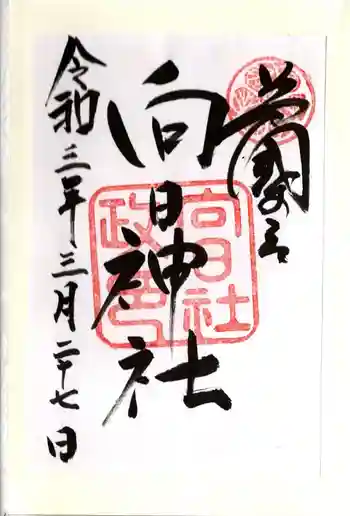 向日神社
向日社
令和三年三月二十七日